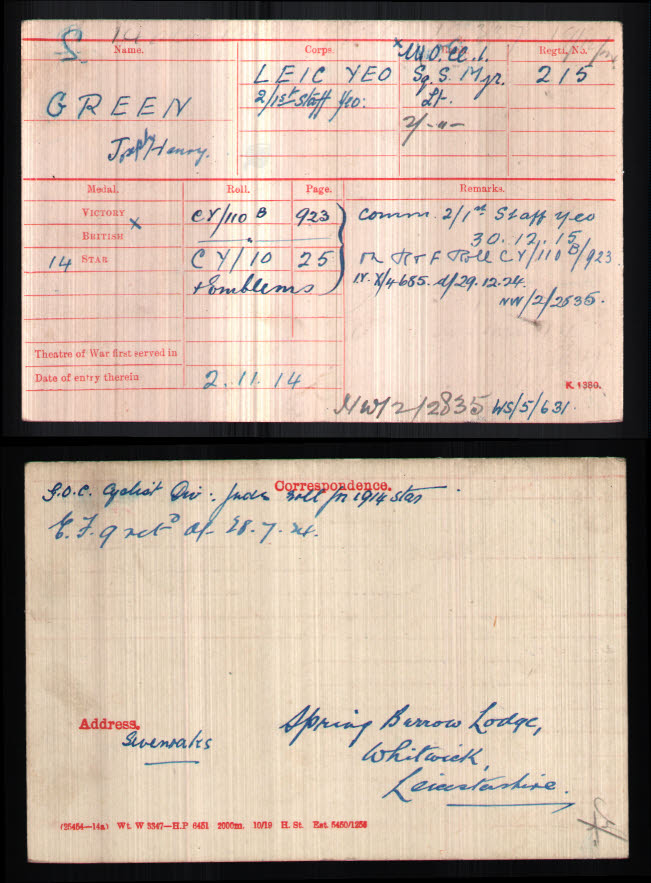 Name. Corps. Regtl. No.
GREEN LEIC YEO Sq. S. Mjr. 215
2/1st Staff Yeo. Lt.
Henry.
Medal. Roll. Page. Remarks.
VICTORY X CY/110 B 923 Comm. 2/1st Staff Yeo
BRITISH " 30.12.15
14 STAR CY/10 25 Roll CY/110 B/923
+ Emblems IV. X/4685. d/29.12.24.
NW/2/2835.
Theatre of War first served in
Date of entry therein 2.11.14
K. 1380.
NW/2/2835 WS/5/631.
Correspondence.
G.O.C. Cyclist Div: Inds Roll for 1914 Star
E.F.9 retd d/- 28.7.24.
Address.
Sevenoaks
Spring Burrow Lodge,
Whitwick,
Leicestershire.
(25454—14a) Wt. W 3347—H.P 6451 2000m. 10/19 H. St. Est. 5450/1256